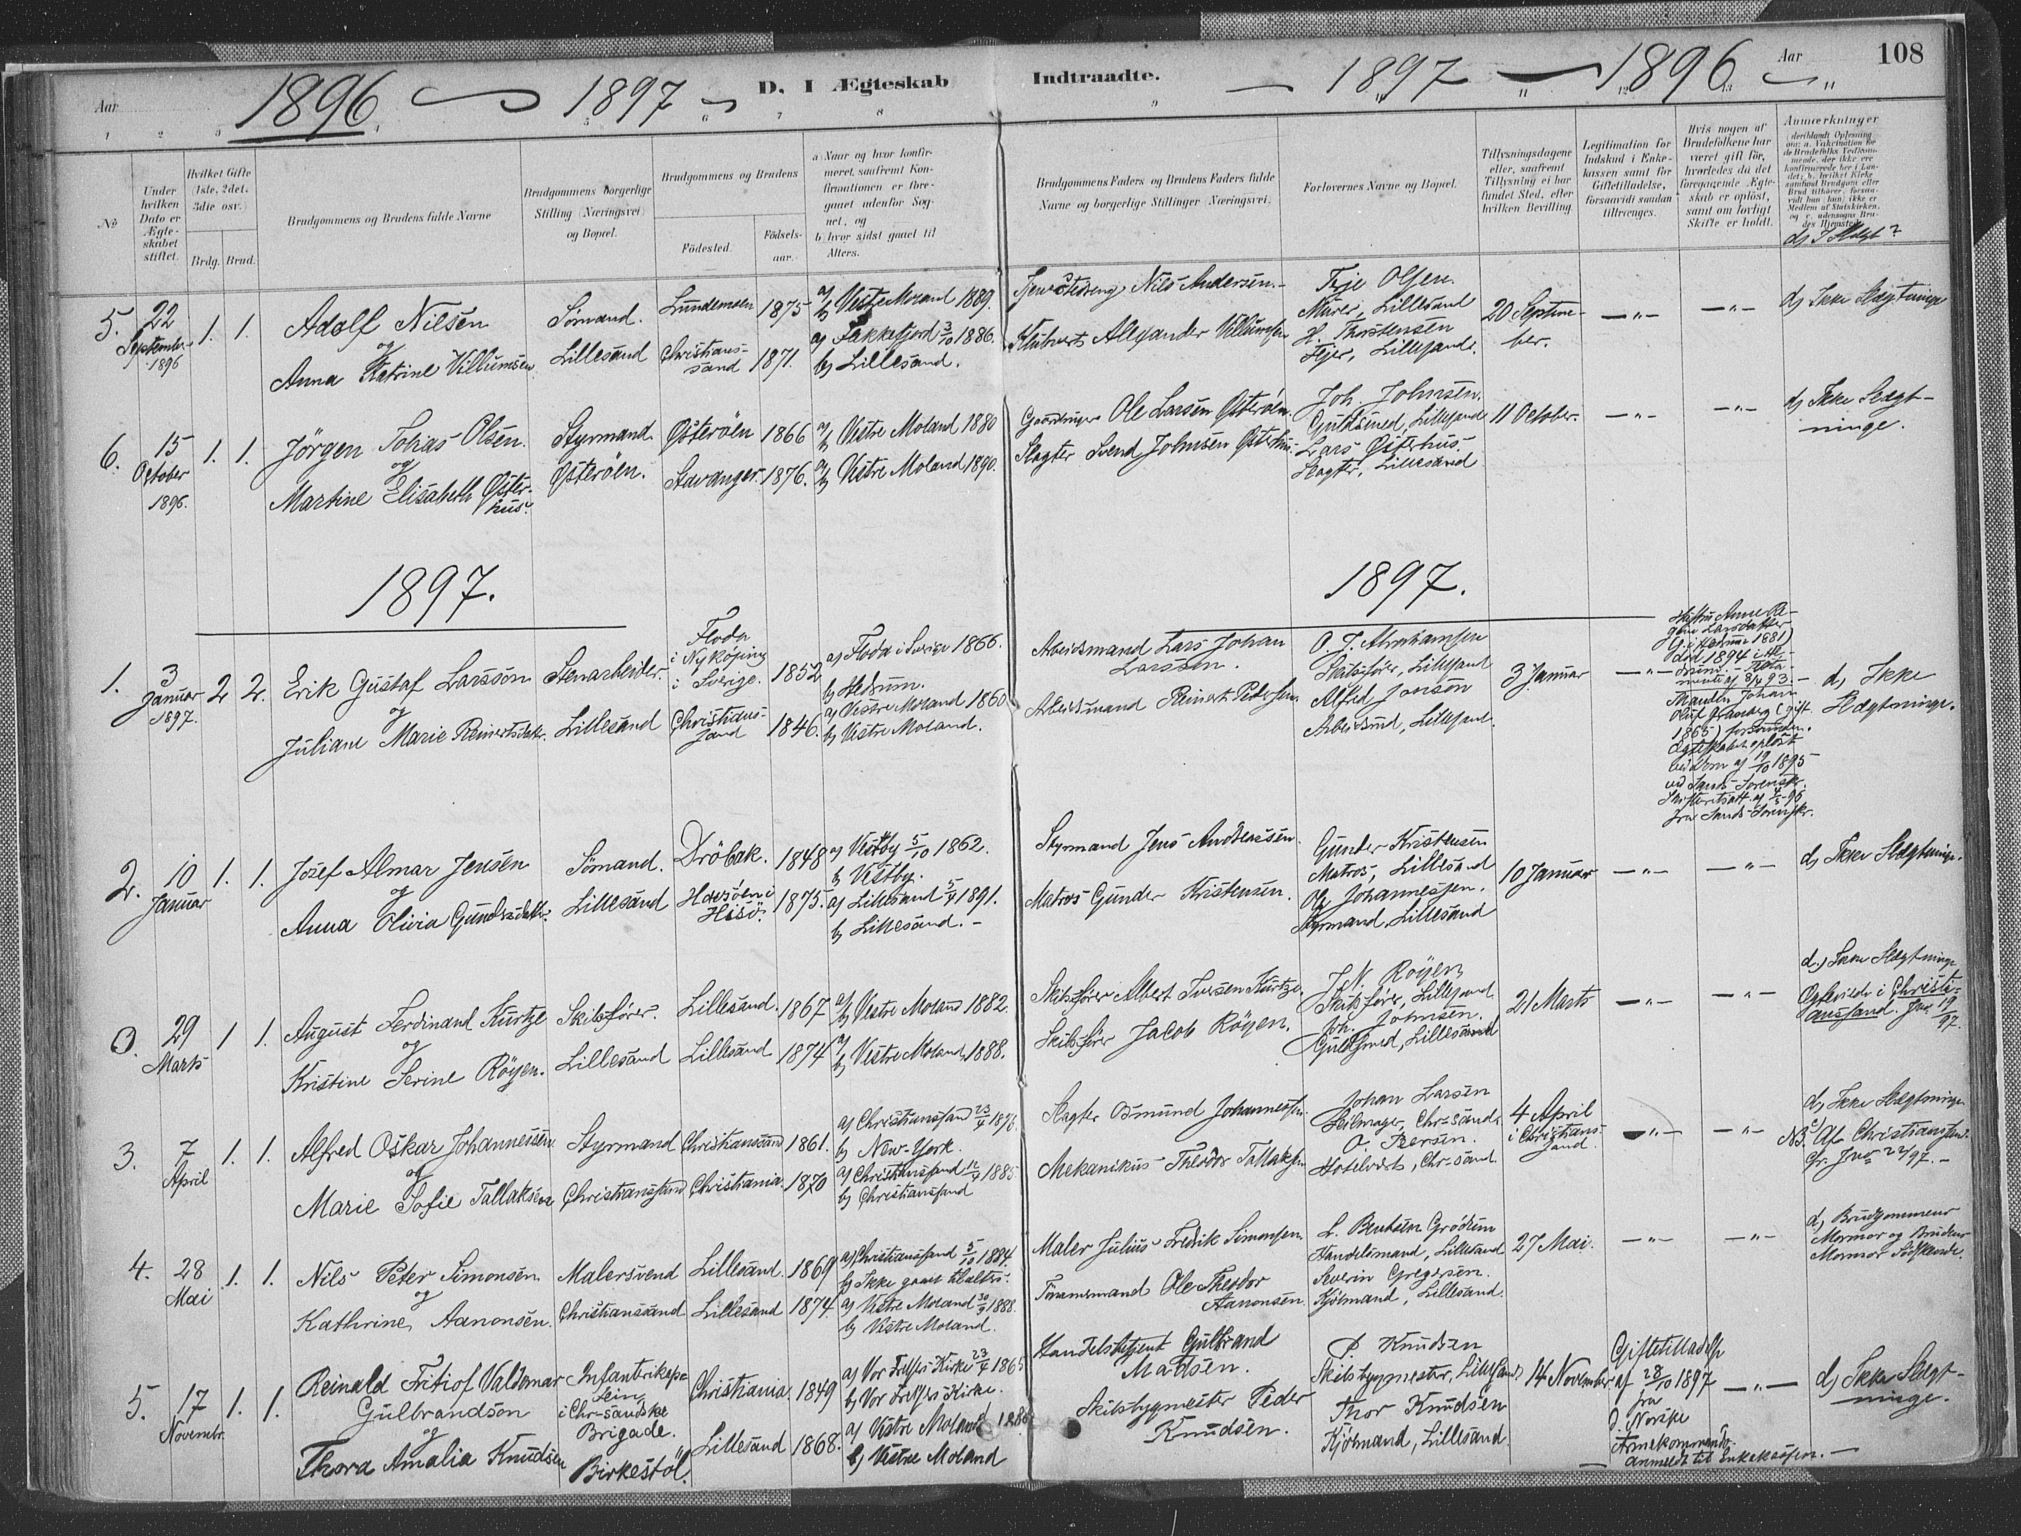 Aar 1896 1897 D. I Ægteskab Indtraadte. 1897 1896 Aar 108
1 2 3 4 5 6 7 8 9 11 12 13 14
No
Under hvilken Dato er Ægteskabet stiftet.
Hvilket Gifte (1ste, 2det, 3die osv.)
Brdg. Brud.
Brudgommens og Brudens fulde Navne
Brudgommens borgerlige Stilling (Næringsvei) og Bopæl.
Brudgommens og Brudens
Födested. Födselsaar.
a) Naar og hvor konfirmeret, saafremt Konfirmationen er foregaaet udenfor Sognet, og
b) hvor sidst gaaet til Alters.
Brudgommens Faders og Brudens Faders fulde Navne og borgerlige Stillinger (Næringsvei)
Forlovernes Navne og Bopæl.
Tillysningsdagene eller, saafremt Tillysning ei har fundet Sted, efter hvilken Bevilling
Legitimation for Indskud i Enkekassen samt for Giftetilladelse, forsaavidt saadan tiltrænges.
Hvis nogen af Brudefolkene har været gift før, hvorledes da det foregaaende Ægteskab er opløst, samt om lovligt Skifte er holdt.
Anmærkninger
5. 22 September 1896 1. 1.
Adolf Nilsen
og
Anna Katrine Villumsen
Sömand.
Lillesand
1875
Christianssand 1871.
a) b) Vestre Moland 1889.
a) Flekkefjord 3/10 1886.
b) Lillesand.
Nils Andersen
Alexander Villumsen
Terje Olsen
Murer, Lillesand
H. Thorstensen
Lillesand.
20 September.
— " —
— " —
d) Ikke Slægtninge
6. 15 October 1896. 1. 1.
Jörgen Tobias Olsen.
og
Martine Elisabeth Østerhus.
Styrmand
Østeröen.
Østeröen 1866
Stavanger. 1876.
a) b) Vestre Moland 1880
a) b) Vestre Moland 1890.
Gaardbruger Ole Larsen Østeröen.
Slagter Svend Johnsen Østerhus.
Joh. Johnsen.
Guldsmed, Lillesand
Lars Østerhus.
Slagter, Lillesand
11 October.
— " —
— " —
d) Ikke Slægtninge.
1897. 1897.
1. 3 Januar 1897. 2 2.
Erik Gustaf Larsson
og
Juliane Marie Reinertsdatr.
Stenarbeider.
Lillesand
Floda i Nyköping i Sverige. 1852
Christianssand 1846.
a) Floda i Sverige 1866.
b) Hedrum.
a) Vestre Moland 1860
b) Vestre Moland.
Arbeidsmand Lars Johan Larsson.
Arbeidsmand Reinert Pedersen
O. J. Abrahamsen
Skibsförer, Lillesand
Alfred Jonsen
Arbeidsmd, Lillesand.
3 Januar
— " —
Hustru Anne Regine Larsdatter
(g. i Hedrum 1881)
död 1894 i Hedrum.
Manden Johan
Oluf (gift
1865) forsvunden.
Ægteskabet oplöst
ved Dom af 19/10 1895
d) Ikke Slægtninge.
2. 10 Januar 1. 1.
Josef Almar Jensen
og
Anna Olivia Gundersdatter.
Sömand.
Lillesand
Dröbak. 1848
i Hisö. 1875.
a) Vestby 5/10 1862.
b) Vestby.
a) Lillesand 5/4 1891.
b) Lillesand. —
Styrmand Jens Andreassen.
Matros Gunder Kristensen.
Gunder Kristensen
Matros, Lillesand
Ole Johannessen.
Styrmand, Lillesand
10 Januar
— " —
— " —
d) Ikke Slægtninge.
0. 29 Marts 1 1.
August Ferdinand Kurtze
og
Kristine Serine Röyen.
Skibsförer.
Lillesand
Lillesand. 1867
Lillesand 1874
a) b) Vestre Moland 1882.
a) b) Vestre Moland 1888.
Skibsförer Albert Iversen Kurtze.
Skibsförer Jacob Röyen.
J. N. Röyen
Skibsförer, Lillesand
Joh. Johnsen.
Guldsmed, Lillesand
21 Marts
— " —
— " —
d.) Ikke Slægtninge
Copuleret i Christianssand.
3. 7 April 1. 1.
Alfred Oskar Johannessen
og
Marie Sofie Tallaksen
Styrmand
Christianssand
Christianssand 1861.
Christiania. 1870
a) Christianssand 23/4 1876
b) New-York.
a) Christianssand 12/4 1885
b) Christianssand
Slagter Osmund Johannessen.
Mekanikus Theodor Tallaksen
Johan Larsen
Chr-sand.
O Iversen.
Hotelvert, Chr-sand
4 April i Christianssand.
— " —
— " —
d) Ikke Slægtninge
NB. Af Christianssand.
4. 28 Mai 1. 1.
Nils Peter Simonsen
og
Kathrine Aanonsen.
Malersvend
Christianssand
Lillesand. 1869
Lillesand 1874.
a) Christianssand 5/10 1884.
b) Ikke gaaet tilalters.
a) Vestre Moland 30/9 1888.
b) Vestre Moland.
Maler Julius Fredrik Simonsen.
Tömmermand Ole Theodor Aanonsen.
L. Bentsen Grödum
Handelsmand, Lillesand
Severin Gregersen.
Kjöbmand, Lillesand.
27 Mai.
— " —
— " —
d) Brudgommens
Mormor og Brudens
Mormor Södskende.
5. 17 Novembr. 1. 1.
Reinald Fritiof Valdemar
Gulbrandson
og
Thora Amalia Knudsen
Infanterikaptein
i Chr-sandske
Brigade.
Birkestöl.
Christiania. 1849
Lillesand 1868.
a) Vor Frelsers Kirke 23/4 1865
b) Vor Frelsers Kirke.
a) Vestre Moland
b) Vestre Moland
Handelsbetjent Gulbrand
Madsen.
Skibsbygmester Peder
Knudsen.
P. Knudsen
Skibsbygmester, Lillesand
Thor Knudsen
Kjöbmand, Lillesand.
14 November
Giftetilladelse
af 28/10 1897
fra
Norske
Armekommando.
anmeldt til Enkekassen. —
— " —
d) Ikke Slægtninge.